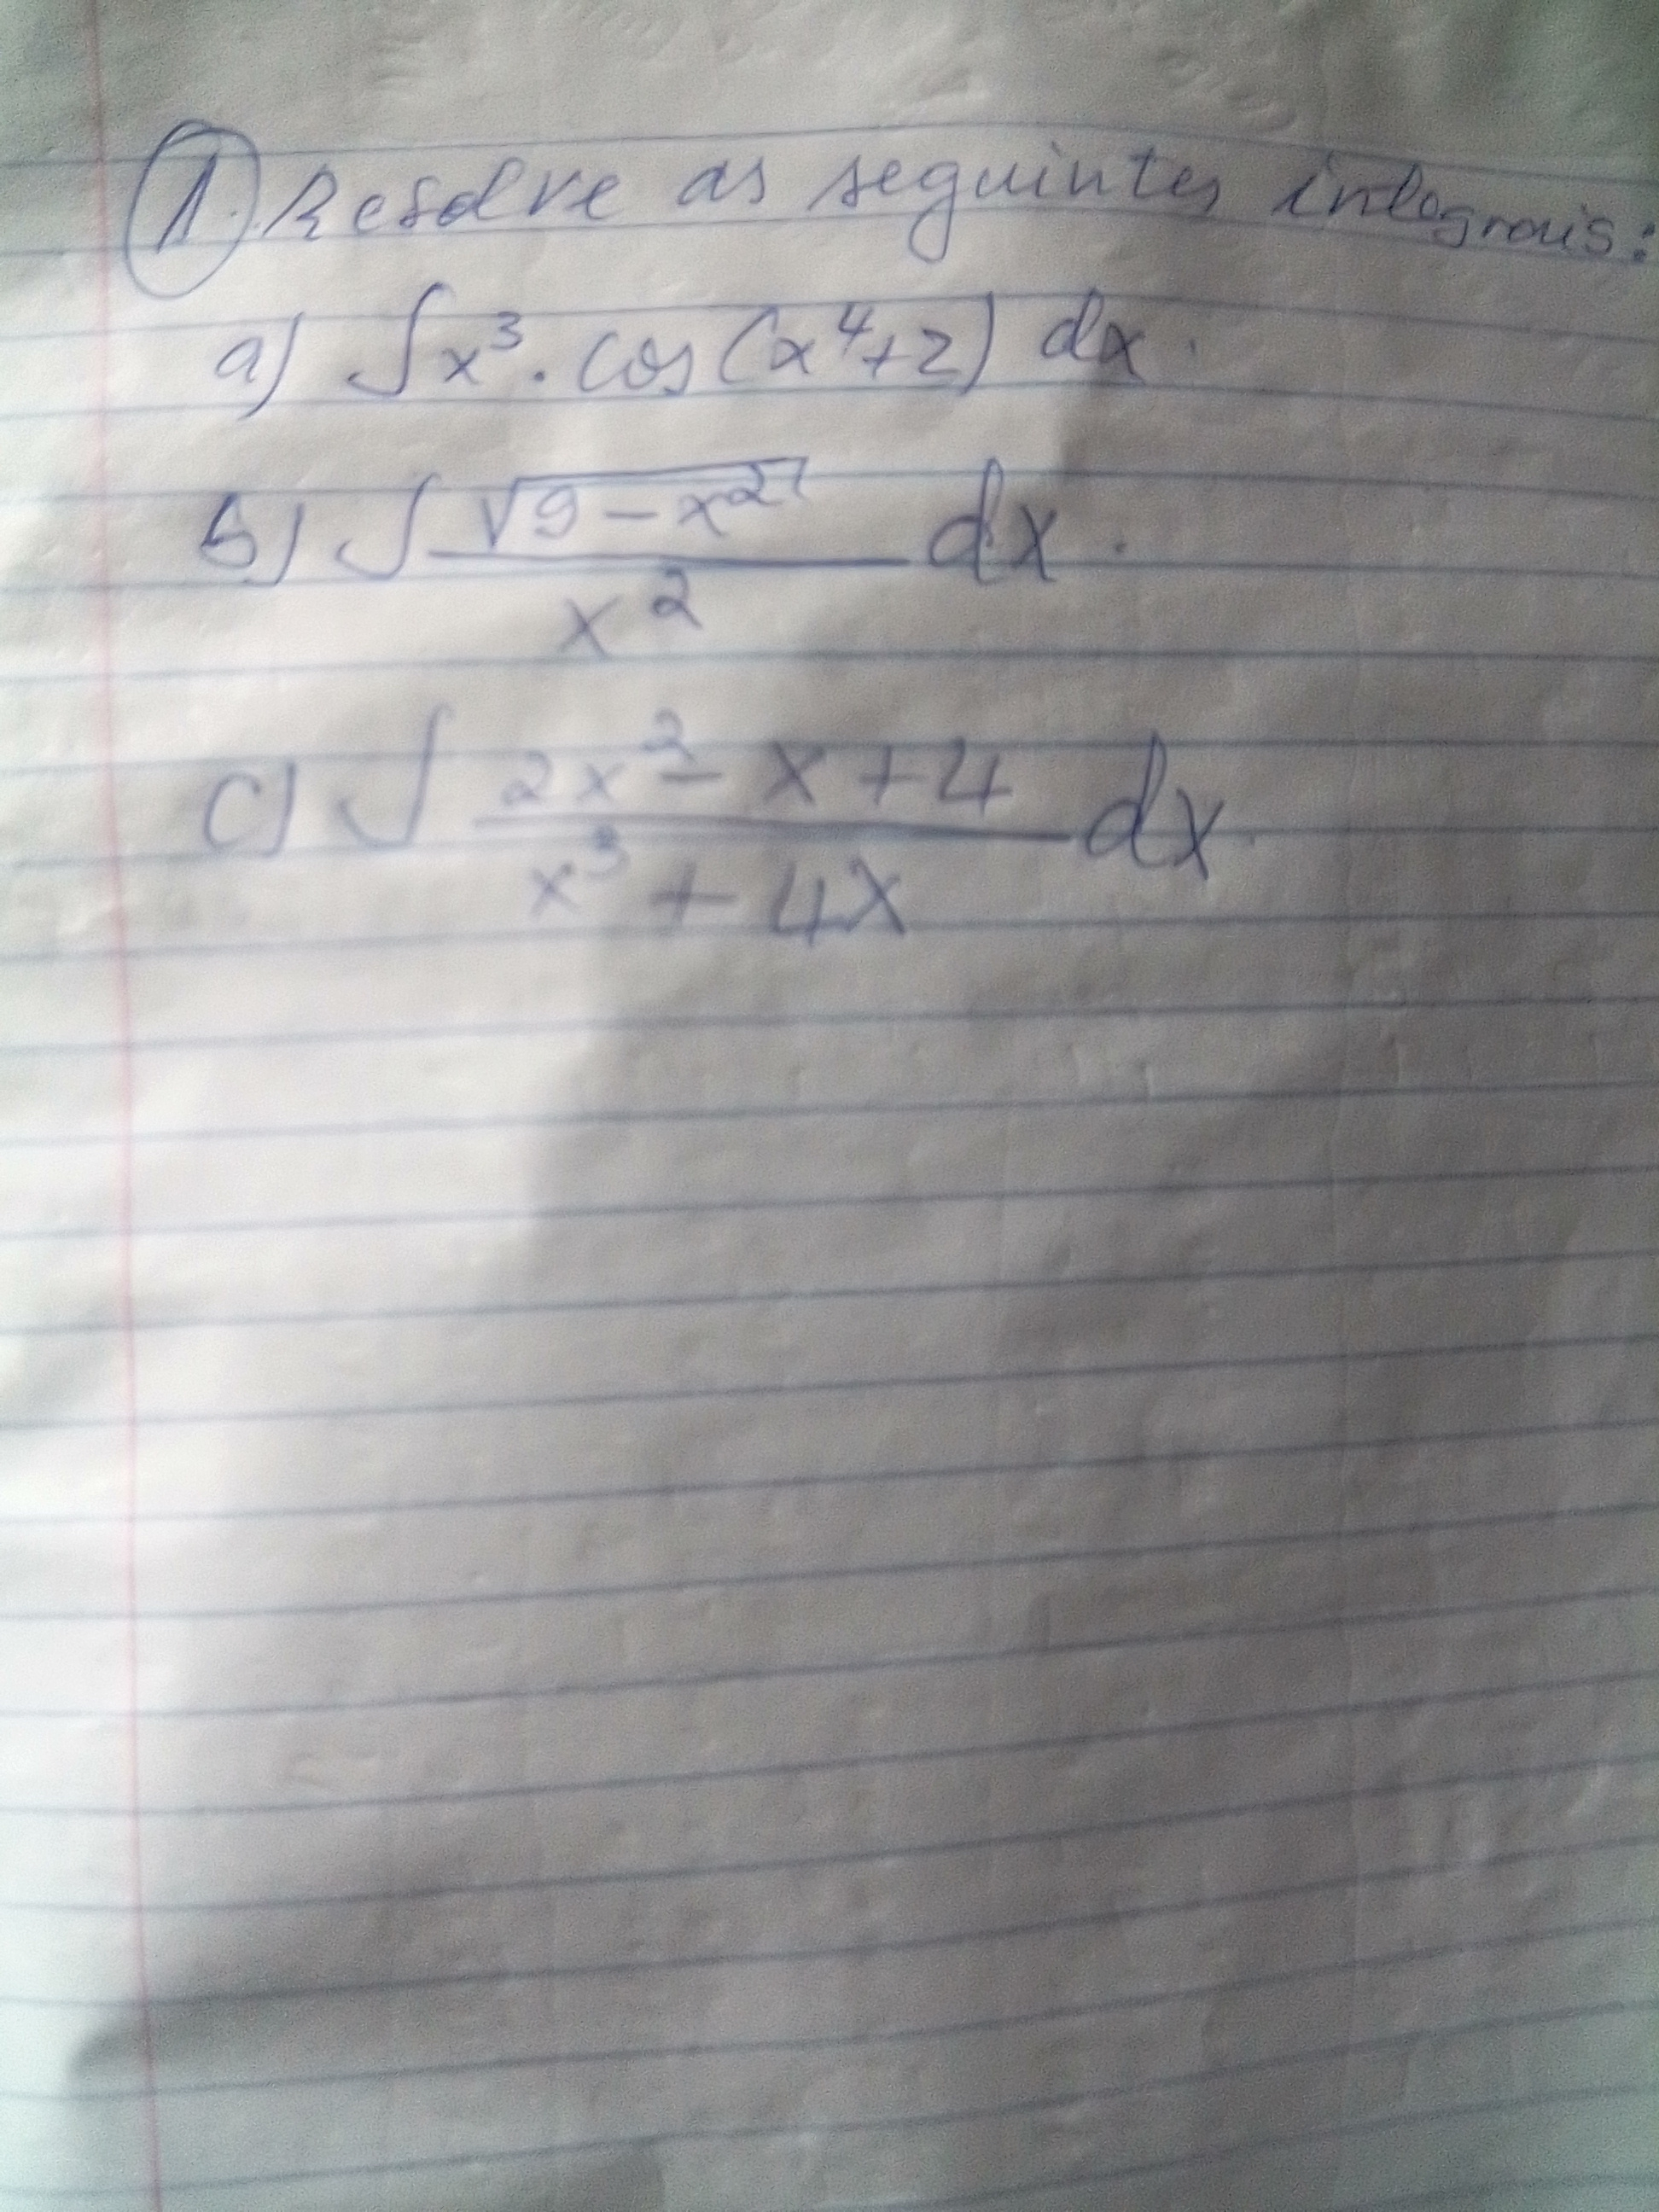 1. Resolve as seguintes integrais:
a) ∫x³ · cos(x⁴+2) dx.
b) ∫ √(9-x²) / x² dx.
c) ∫ (2x² - x + 4) / (x³ + 4x) dx.